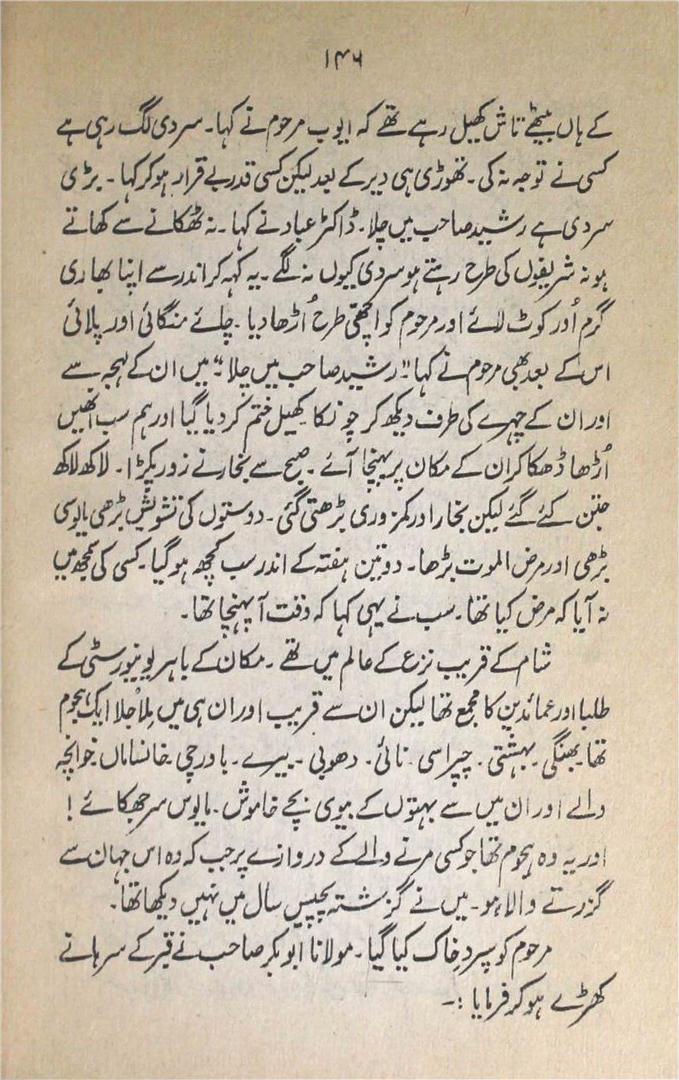 ۱۴۶
کے ہاں بیٹھے تاش کھیل رہے تھے کہ ایوب مرحوم نے کہا۔ سردی لگ رہی ہے
کسی نے توجہ نہ کی۔ تھوڑی ہی دیر کے بعد لیکن کسی قدر بے قرار ہو کر کہا۔ بڑی
سردی ہے رشید صاحب میں چلا۔ ڈاکٹر عباد نے کہا۔ نہ ٹھکانے سے کھاتے
ہو نہ شریفوں کی طرح رہتے ہو سردی کیوں نہ لگے۔ یہ کہہ کر اندر سے اپنا بھاری
گرم اُور کوٹ لائے اور مرحوم کو اچھی طرح اُڑھا دیا۔ چائے منگائی اور پلائی
اس کے بعد بھی مرحوم نے کہا۔ "رشید صاحب میں چلا۔" میں ان کے لہجہ سے
اور ان کے چہرے کی طرف دیکھ کر چونکا کھیل ختم کر دیا گیا اور ہم سب انھیں
اُڑھا ڈھکا کر ان کے مکان پر پہنچا آئے۔ صبح سے بخار نے زور پکڑا۔ لاکھ لاکھ
جتن کئے گئے لیکن بخار اور کمزوری بڑھتی گئی۔ دوستوں کی تشویش بڑھی مایوسی
بڑھی اور مرض الموت بڑھا۔ دو تین ہفتہ کے اندر سب کچھ ہو گیا۔ کسی کی سمجھ میں
نہ آیا کہ مرض کیا تھا۔ سب نے یہی کہا کہ وقت آ پہنچا تھا۔
شام کے قریب نزع کے عالم میں تھے۔ مکان کے باہر یونیورسٹی کے
طلبا اور عمائدین کا مجمع تھا لیکن ان سے قریب اور ان ہی میں مِلا جُلا ایک ہجوم
تھا بھنگی۔ بہشتی۔ چپراسی۔ نائی۔ دھوبی۔ بیرے۔ باورچی خانساماں خوانچہ
والے اور ان میں سے بہتوں کے بیوی بچے خاموش۔ مایوس سر جھکائے!
اور یہ وہ ہجوم تھا جو کسی مرنے والے کے دروازے پر جب کہ وہ اس جہان سے
گزرنے والا ہو۔ میں نے گزشتہ پچیس سال میں نہیں دیکھا تھا۔
مرحوم کو سپرد خاک کیا گیا۔ مولانا ابوبکر صاحب نے قبر کے سرہانے
کھڑے ہو کر فرمایا :۔